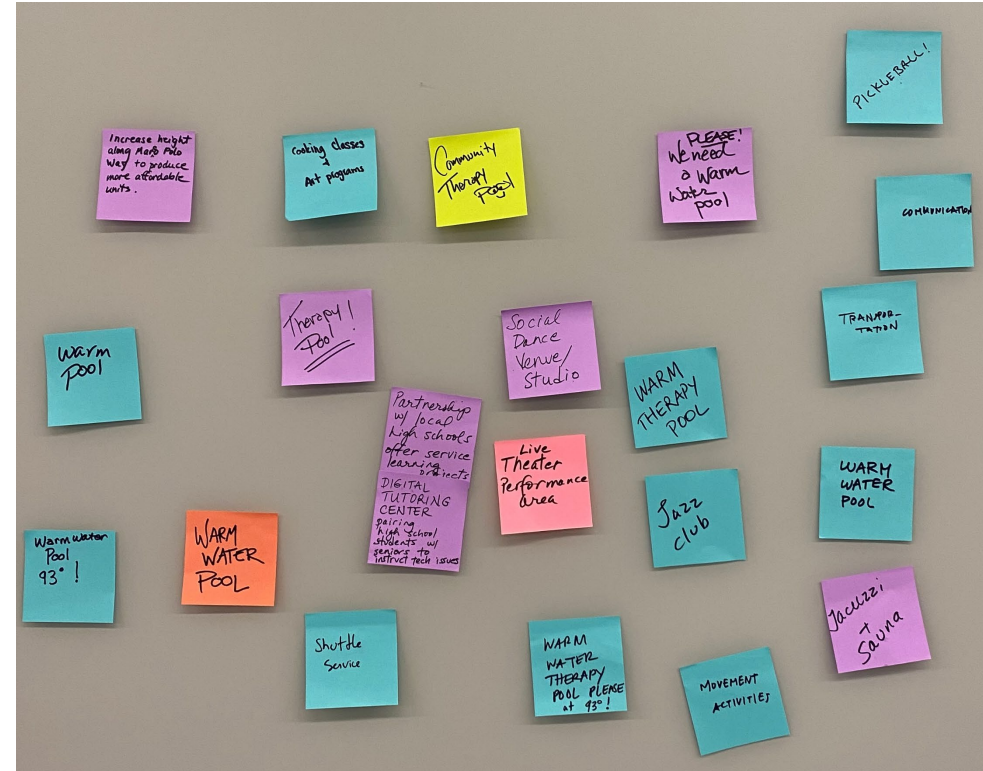 PICKLEBALL!
Increase height
along Marco Polo
Way to produce
more affordable
units.
Cooking classes
+
Art programs
Community
Therapy
Pool
PLEASE!
We need
a Warm
Water
pool
COMMUNICATION
Therapy!
Pool!
Social
Dance
Venue/
Studio
TRANSPOR-
TATION
Warm
pool
WARM
THERAPY
POOL
Partnership
w/ local
high schools
offer service
learning
projects
DIGITAL
TUTORING
CENTER
pairing
high school
students w/
seniors to
instruct tech issues
Live
Theater
Performance
area
WARM
WATER
POOL
Jazz
club
Warm water
Pool
93° !
WARM
WATER
POOL
Jacuzzi
+
Sauna
Shuttle
Service
WARM
WATER
THERAPY
POOL PLEASE
at 93°!
MOVEMENT
ACTIVITIES